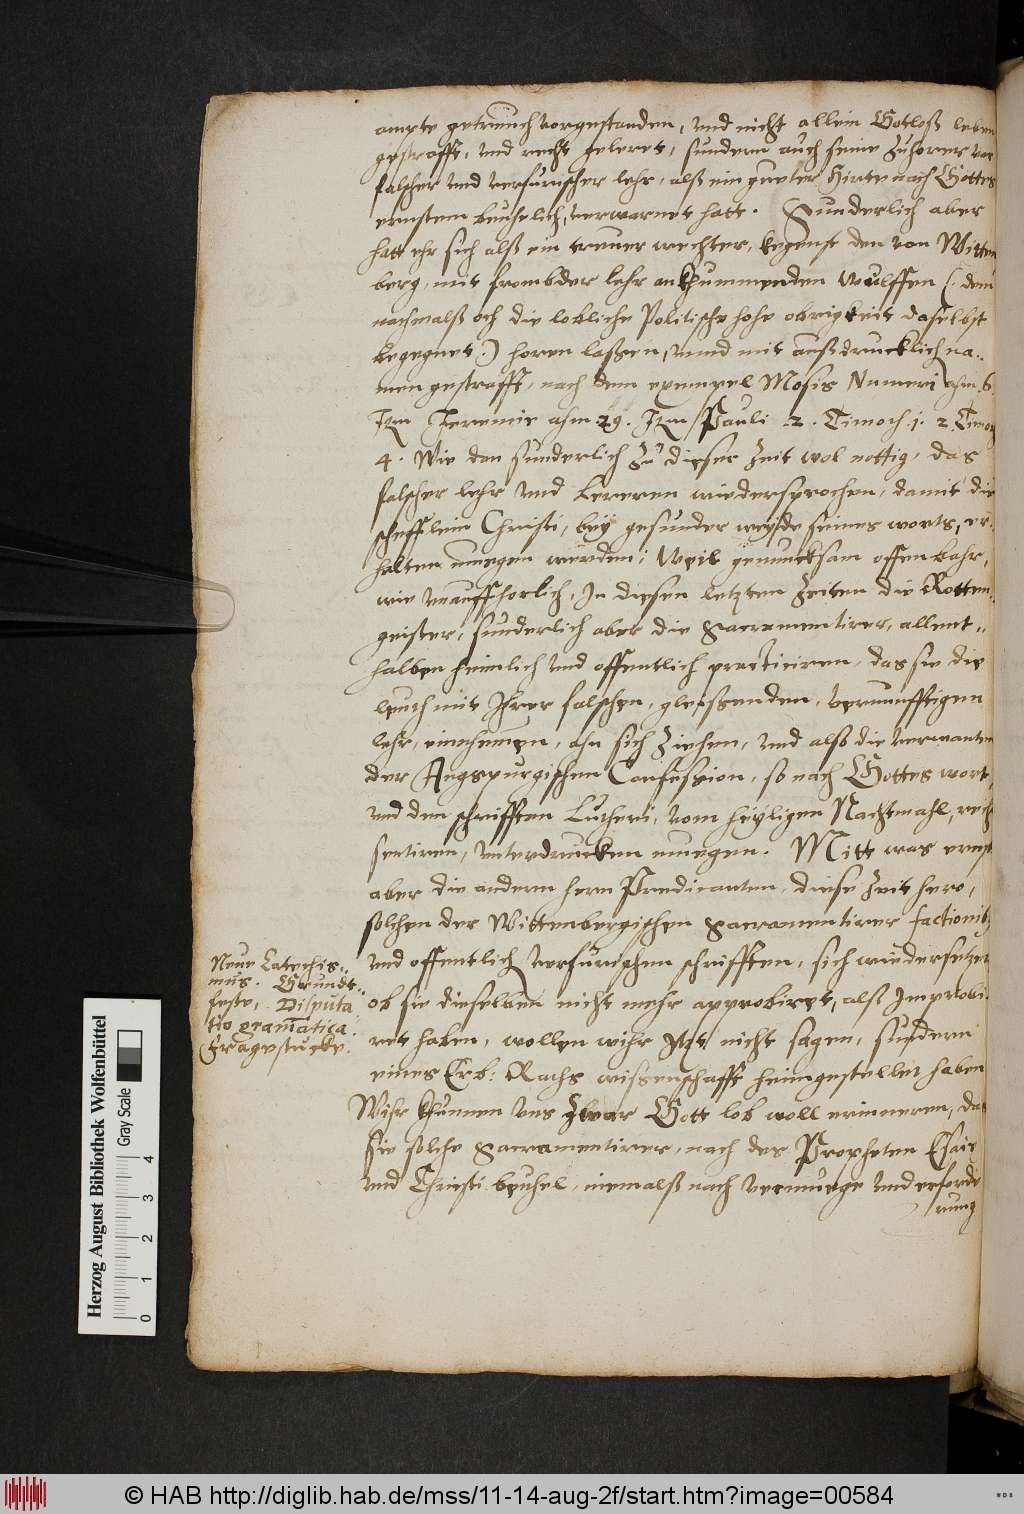 ampte getreuch vorgestanden, vnd nicht allein Gotloß leben
gestrafft, vnd recht geleret, sundern auch seine zuhorer vor
falscher vnd verfurischer lehr, alß ein gueter Hirte nach Gottes
ernstem beuhelich, verwarnet hatt. Sunderlich aber
hatt ehr sich alß ein treuer wechter, kegenst den von Witten
berg, mit frombder lehr ankhummenden Wulffen (: dem
nachmalß och die lobliche Politische hohe obrigkeit daselbst
begegnet :) horen laßen, vnnd mit außdrucklich na..
men gestrafft, nach dem exempel Mosis Numeri ahm 6
Item Jeremie ahm 29. Item Pauli 2. Timoth. 1. 2. Timoth
4. Wie dan sunderlich zu dieser Zeit wol nottig, das
falscher lehr vnd lereren wiedersprochen, damit die
scheffelein Christi, bey gesunder weyde seines worts, er..
halten muegen werden; Weil genucksam offenbahr,
wie vnauffhorlich, In diesen letzten Zeiten die Rotten..
geister, sunderlich aber die Sacramentirer, allent..
halben heimlich vnd offentlich practiciren, das sie die
leuth mit Ihrer falschen, gleissenden, vernunfftigen
lehr, einnehmen, ahn sich ziehen, vnd alß die verwanten
der Augspurgischen Confession, so nach Gottes wort,
vnd den schrifften Lutheri, vom heyligen Nachtmahl, recht
sentiren, vnterdrucken muegen. Mitt was ernst
aber die andern hern Predicanten, diese Zeit hero,
solchen der Wittenbergischen Sacramentirer factionib
vnd offentlich verfurischen schrifften, sich wiedersetzet
ob sie dieselben nicht mehr approbiret, alß Improbi..
ret haben, wollen wihr Itzt nicht sagen, sundern
eines Erb: Raths wissenschafft heimgestellet haben
Wihr khunnen vns zwar Gott lob woll erinneren, das
sie solche Sacramentirer, nach des Propheten Esaie
vnd Christi beuhel, niemalß nach vermuege vnd erforde
rung
Neue Catechis..
mus. Grundt..
feste, Disputa
tio gramatica.
Fragestucke.
Herzog August Bibliothek Wolfenbüttel
Gray Scale
0 1 2 3 4
© HAB http://diglib.hab.de/mss/11-14-aug-2f/start.htm?image=00584